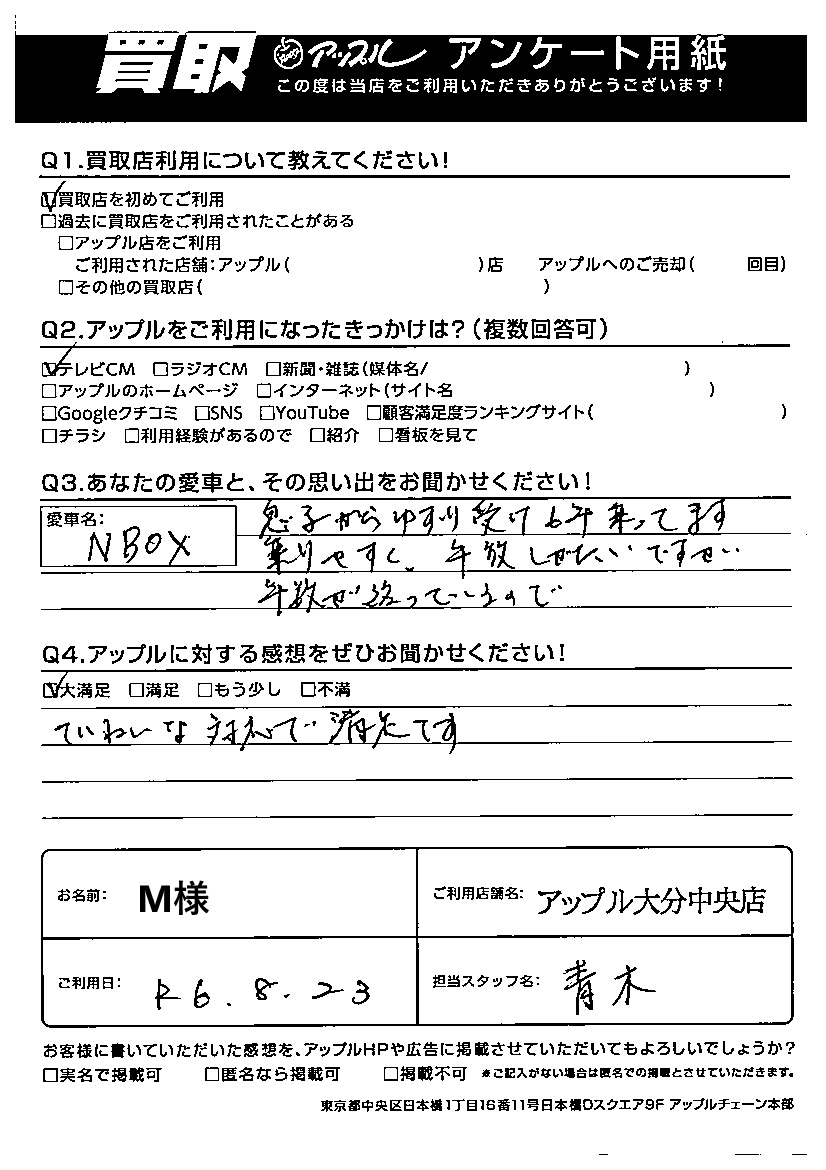 買取 アップル アンケート用紙
この度は当店をご利用いただきありがとうございます!
Q1.買取店利用について教えてください!
☑買取店を初めてご利用
□過去に買取店をご利用されたことがある
□アップル店をご利用
ご利用された店舗:アップル( )店 アップルへのご売却( 回目)
□その他の買取店( )
Q2.アップルをご利用になったきっかけは?(複数回答可)
☑テレビCM □ラジオCM □新聞・雑誌(媒体名/ )
□アップルのホームページ □インターネット(サイト名 )
□Googleクチコミ □SNS □YouTube □顧客満足度ランキングサイト( )
□チラシ □利用経験があるので □紹介 □看板を見て
Q3.あなたの愛車と、その思い出をお聞かせください!
愛車名:
NBOX
息子からゆずり受け6年乗ってます
乗りやすく、手放しがたいですが
年数が経っているので
Q4.アップルに対する感想をぜひお聞かせください!
☑大満足 □満足 □もう少し □不満
ていねいな対応で満足です
お名前: M様
ご利用店舗名: アップル大分中央店
ご利用日: R6.8.23
担当スタッフ名: 青木
お客様に書いていただいた感想を、アップルHPや広告に掲載させていただいてもよろしいでしょうか?
□実名で掲載可 □匿名なら掲載可 □掲載不可 ※ご記入がない場合は匿名での掲載とさせていただきます。
東京都中央区日本橋1丁目16番11号日本橋Dスクエア9F アップルチェーン本部